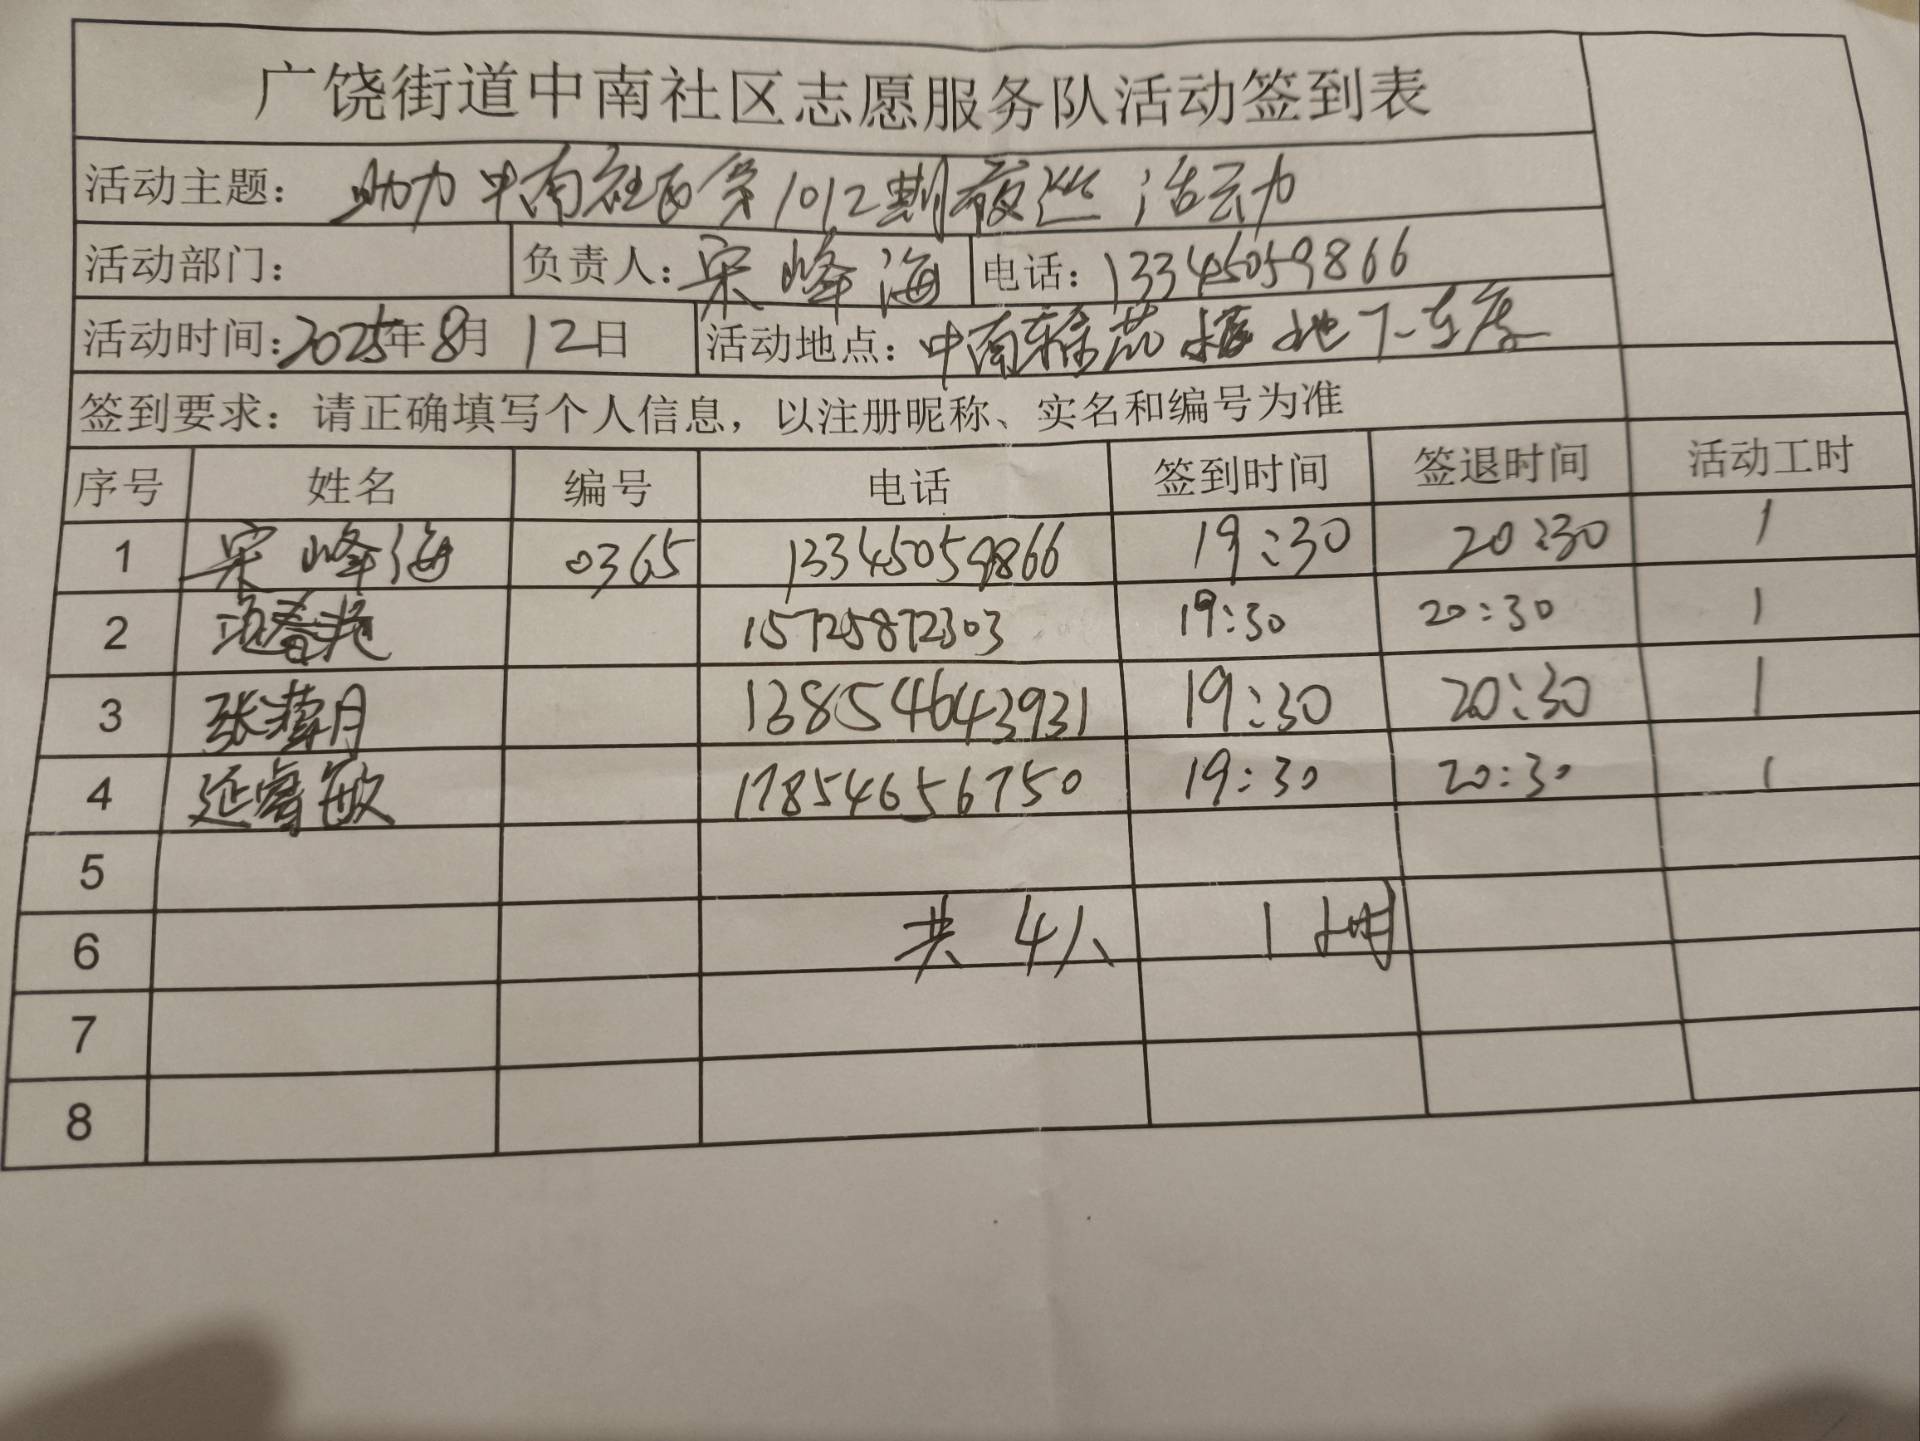 广饶街道中南社区志愿服务队活动签到表
活动主题： 助力中南社区第1012期夜巡活动
活动部门： 负责人：宋峰海 电话：13345059866
活动时间：2025年8月12日 活动地点：中南 地下车库
签到要求：请正确填写个人信息，以注册昵称、实名和编号为准
序号 姓名 编号 电话 签到时间 签退时间 活动工时
1 宋峰海 0365 13345059866 19:30 20:30 1
2 15725872303 19:30 20:30 1
3 张 月 13854643931 19:30 20:30 1
4 延 敏 17854656750 19:30 20:30 1
5
6 共4人 1小时
7
8